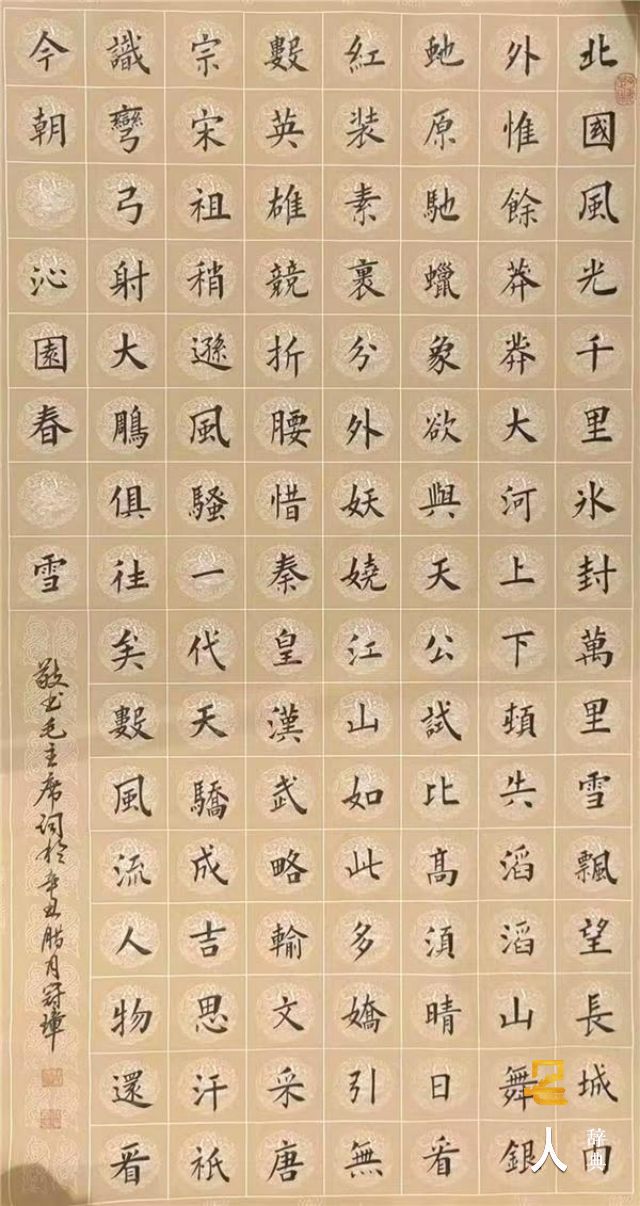 北國風光千里氷封萬里雪飄望長城内
外惟餘莽莽大河上下頓失滔滔山舞銀
虵原馳蠟象欲與天公試比高須晴日看
紅装素裹分外妖嬈江山如此多嬌引無
數英雄競折腰惜秦皇漢武略輸文采唐
宗宋祖稍遜風騷一代天驕成吉思汗祇
識彎弓射大鵰俱往矣數風流人物還看
今朝 沁園春 雪
敬书毛主席词於辛丑腊月冠
人
辞典